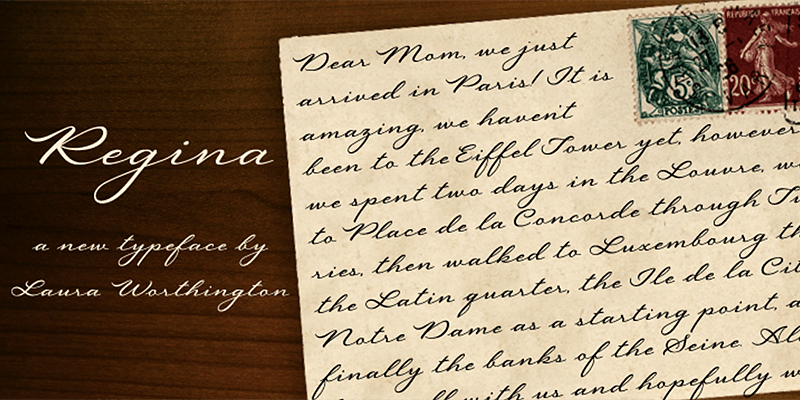 Regina
a new typeface by
Laura Worthington
Dear Mom, we just
arrived in Paris! It is
amazing, we haven't
been to the Eiffel Tower yet, however
we spent two days in the Louvre,
to Place de la Concorde through
ries, then walked to Luxembourg
the Latin quarter, the Ile de la
Notre Dame as a starting point,
finally the banks of the Seine.
with us and hopefully
5c
POSTES
20c